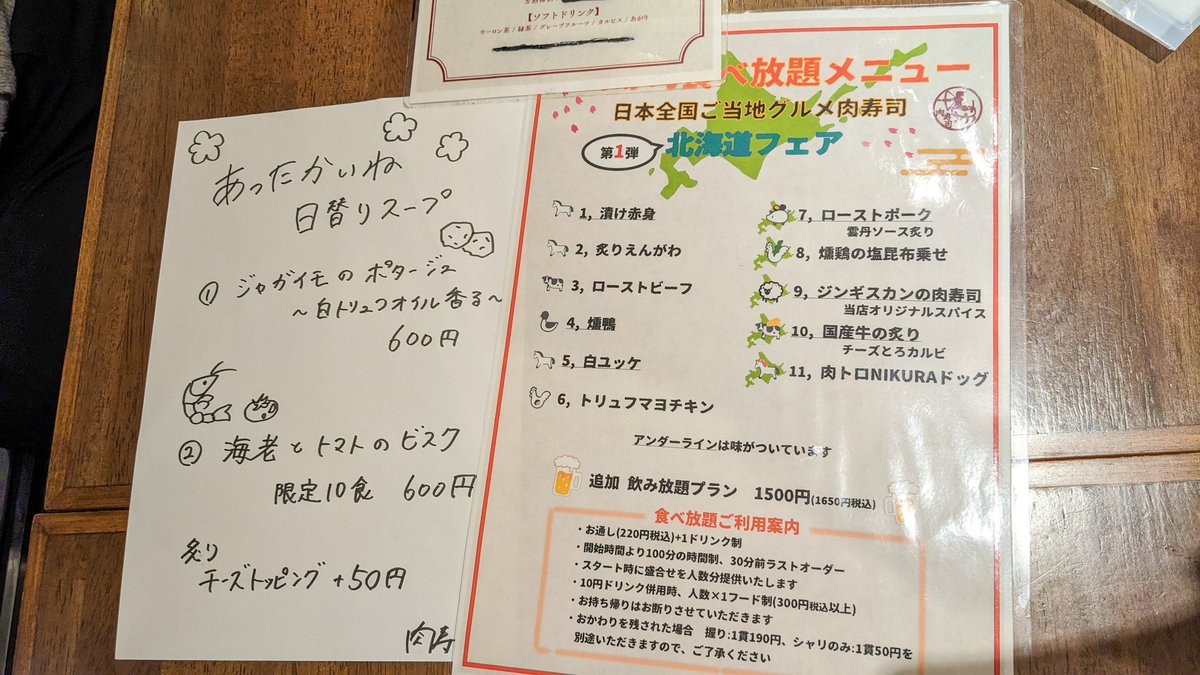 【ソフトドリンク】
ウーロン茶 / 緑茶 / グレープフルーツ / カルピス / あがり
あったかいね
日替りスープ
① ジャガイモのポタージュ
〜白トリュフオイル香る〜
600円
② 海老とトマトのビスク
限定10食 600円
炙り
チーズトッピング +50円
肉寿
べ放題メニュー
日本全国ご当地グルメ肉寿司
第1弾 北海道フェア
1, 漬け赤身
2, 炙りえんがわ
3, ローストビーフ
4, 燻鴨
5, 白ユッケ
6, トリュフマヨチキン
7, ローストポーク
雲丹ソース炙り
8, 燻鶏の塩昆布乗せ
9, ジンギスカンの肉寿司
当店オリジナルスパイス
10, 国産牛の炙り
チーズとろカルビ
11, 肉トロNIKURAドッグ
アンダーラインは味がついています
追加 飲み放題プラン 1500円(1650円税込)
食べ放題ご利用案内
・お通し(220円税込)+1ドリンク制
・開始時間より100分の時間制、30分前ラストオーダー
・スタート時に盛合せを人数分提供いたします
・10円ドリンク併用時、人数×1フード制(300円税込以上)
・お持ち帰りはお断りさせていただきます
・おかわりを残された場合 握り:1貫190円、シャリのみ:1貫50円を
別途いただきますので、ご了承ください